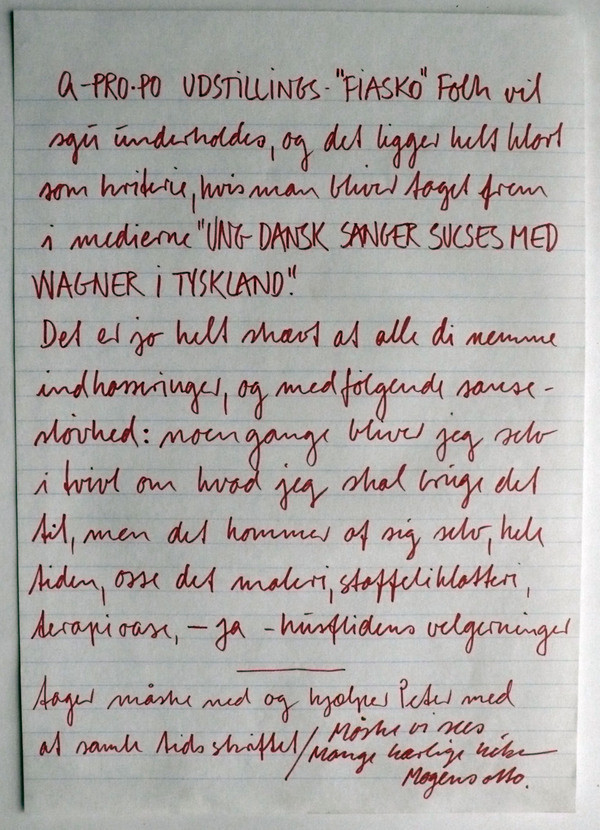 a-PRO·PO UDSTILLINGS-"FIASKO" Folk vil
sgu underholdes, og det ligger helt klart
som kriterie, hvis man bliver taget frem
i medierne "UNG DANSK SANGER SUCSES MED
WAGNER I TYSKLAND".
Det er jo helt skævt at alle di nemme
indkasseringer, og medfølgende sanse-
sløvhed: noengange bliver jeg selv
i tvivl om hvad jeg skal bruge det
til, men det kommer af sig selv, hele
tiden, osse det maleri, staffeliklatteri,
terapioase, – ja - husflidens velgerninger
tager måske ned og hjælper Peter med
at samle tidsskriftet / Måske vi sees
Mange kærlige hilsner
Mogens otto.